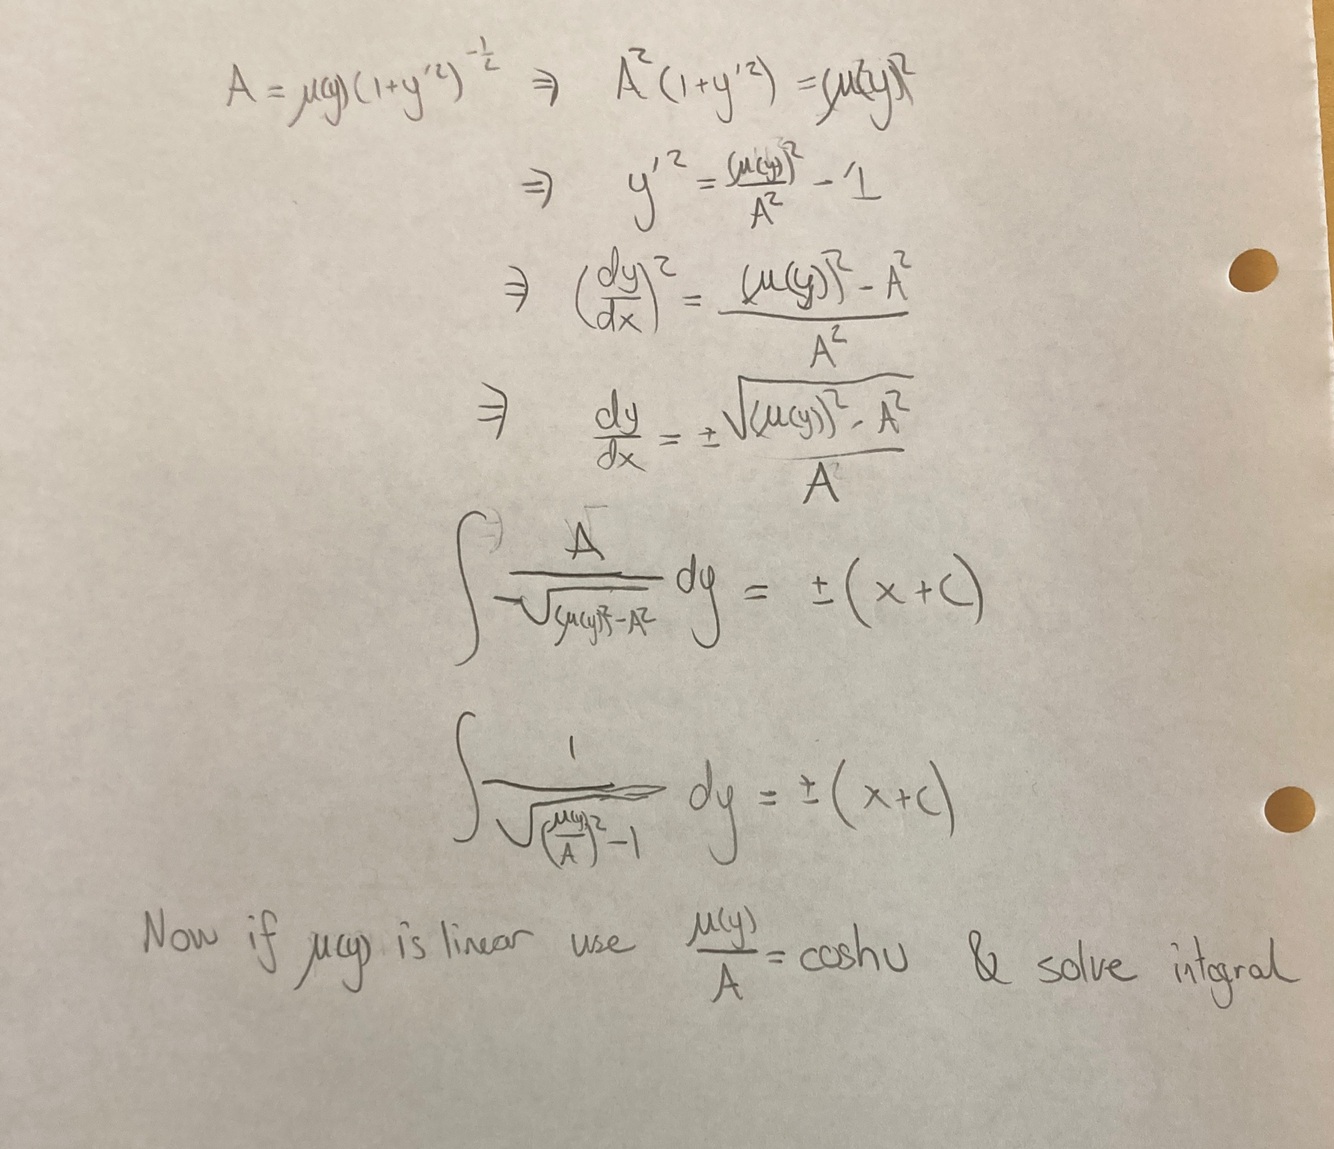 A = μ(y)(1+y'²)^{-1/2} ⇒ A²(1+y'²) = (μ(y))²
⇒ y'² = (μ(y))²/A² - 1
⇒ (dy/dx)² = ((μ(y))² - A²)/A²
⇒ dy/dx = ± √((μ(y))² - A²)/A
∫ A/√((μ(y))² - A²) dy = ±(x+c)
∫ 1/√((μ(y)/A)² - 1) dy = ±(x+c)
Now if μ(y) is linear use μ(y)/A = coshu & solve integral